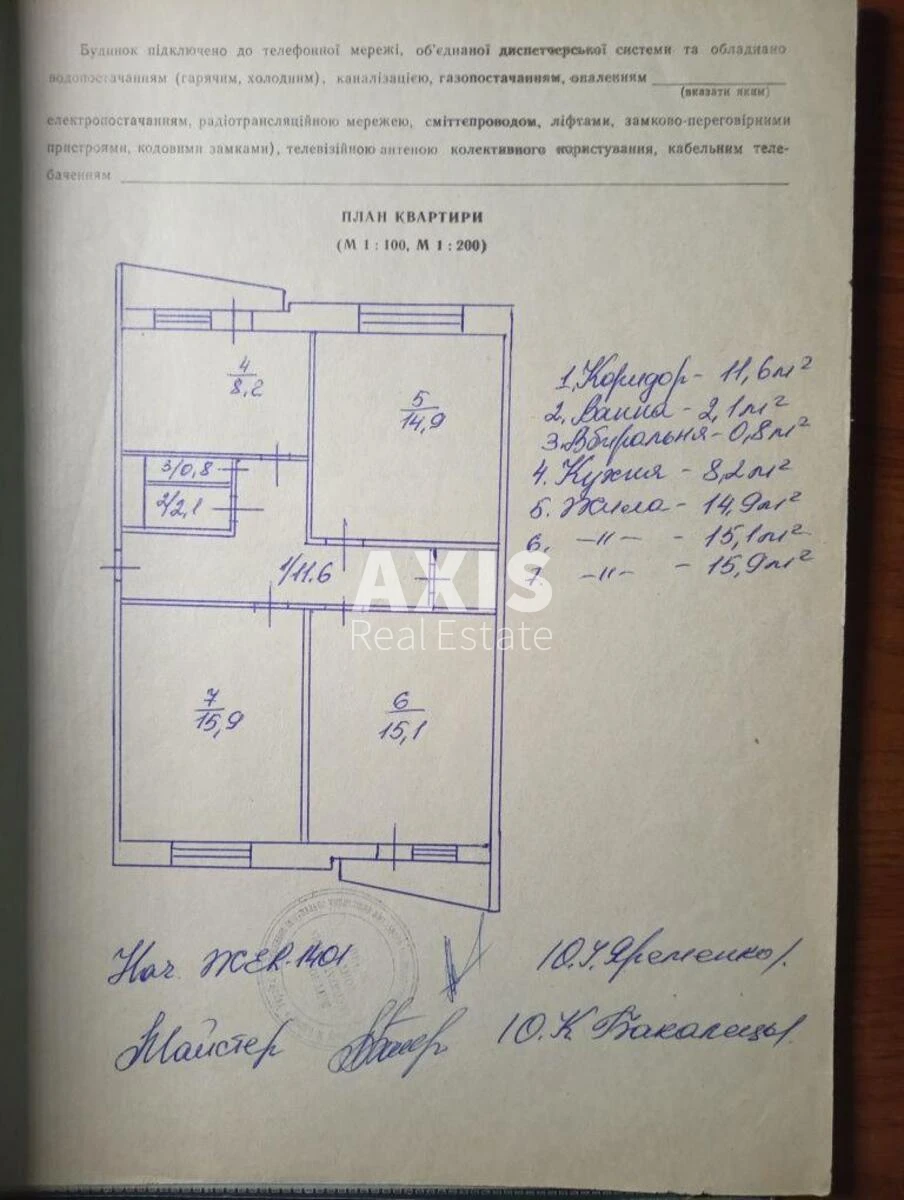 Будинок підключено до телефонної мережі, об'єднаної диспетчерської системи та обладнано
водопостачанням (гарячим, холодним), каналізацією, газопостачанням, опаленням
(вказати яким)
електропостачанням, радіотрансляційною мережею, сміттєпроводом, ліфтами, замково-переговірними
пристроями, кодовими замками), телевізійною антеною колективного користування, кабельним теле-
баченням
ПЛАН КВАРТИРИ
(М 1 : 100, М 1 : 200)
4
8,2
5
14,9
3/0,8
2/2,1
1/11.6
7
15,9
6
15,1
1. Коридор - 11,6 м²
2. Ванна - 2,1 м²
3. Вбиральня - 0,8 м²
4. Кухня - 8,2 м²
5. Жила - 14,9 м²
6. -"- - 15,1 м²
7. -"- - 15,9 м²
AXIS
Real Estate
Нач. ЖЕК 1401
Ю.Г. Яременко
Майстер
Ю.К